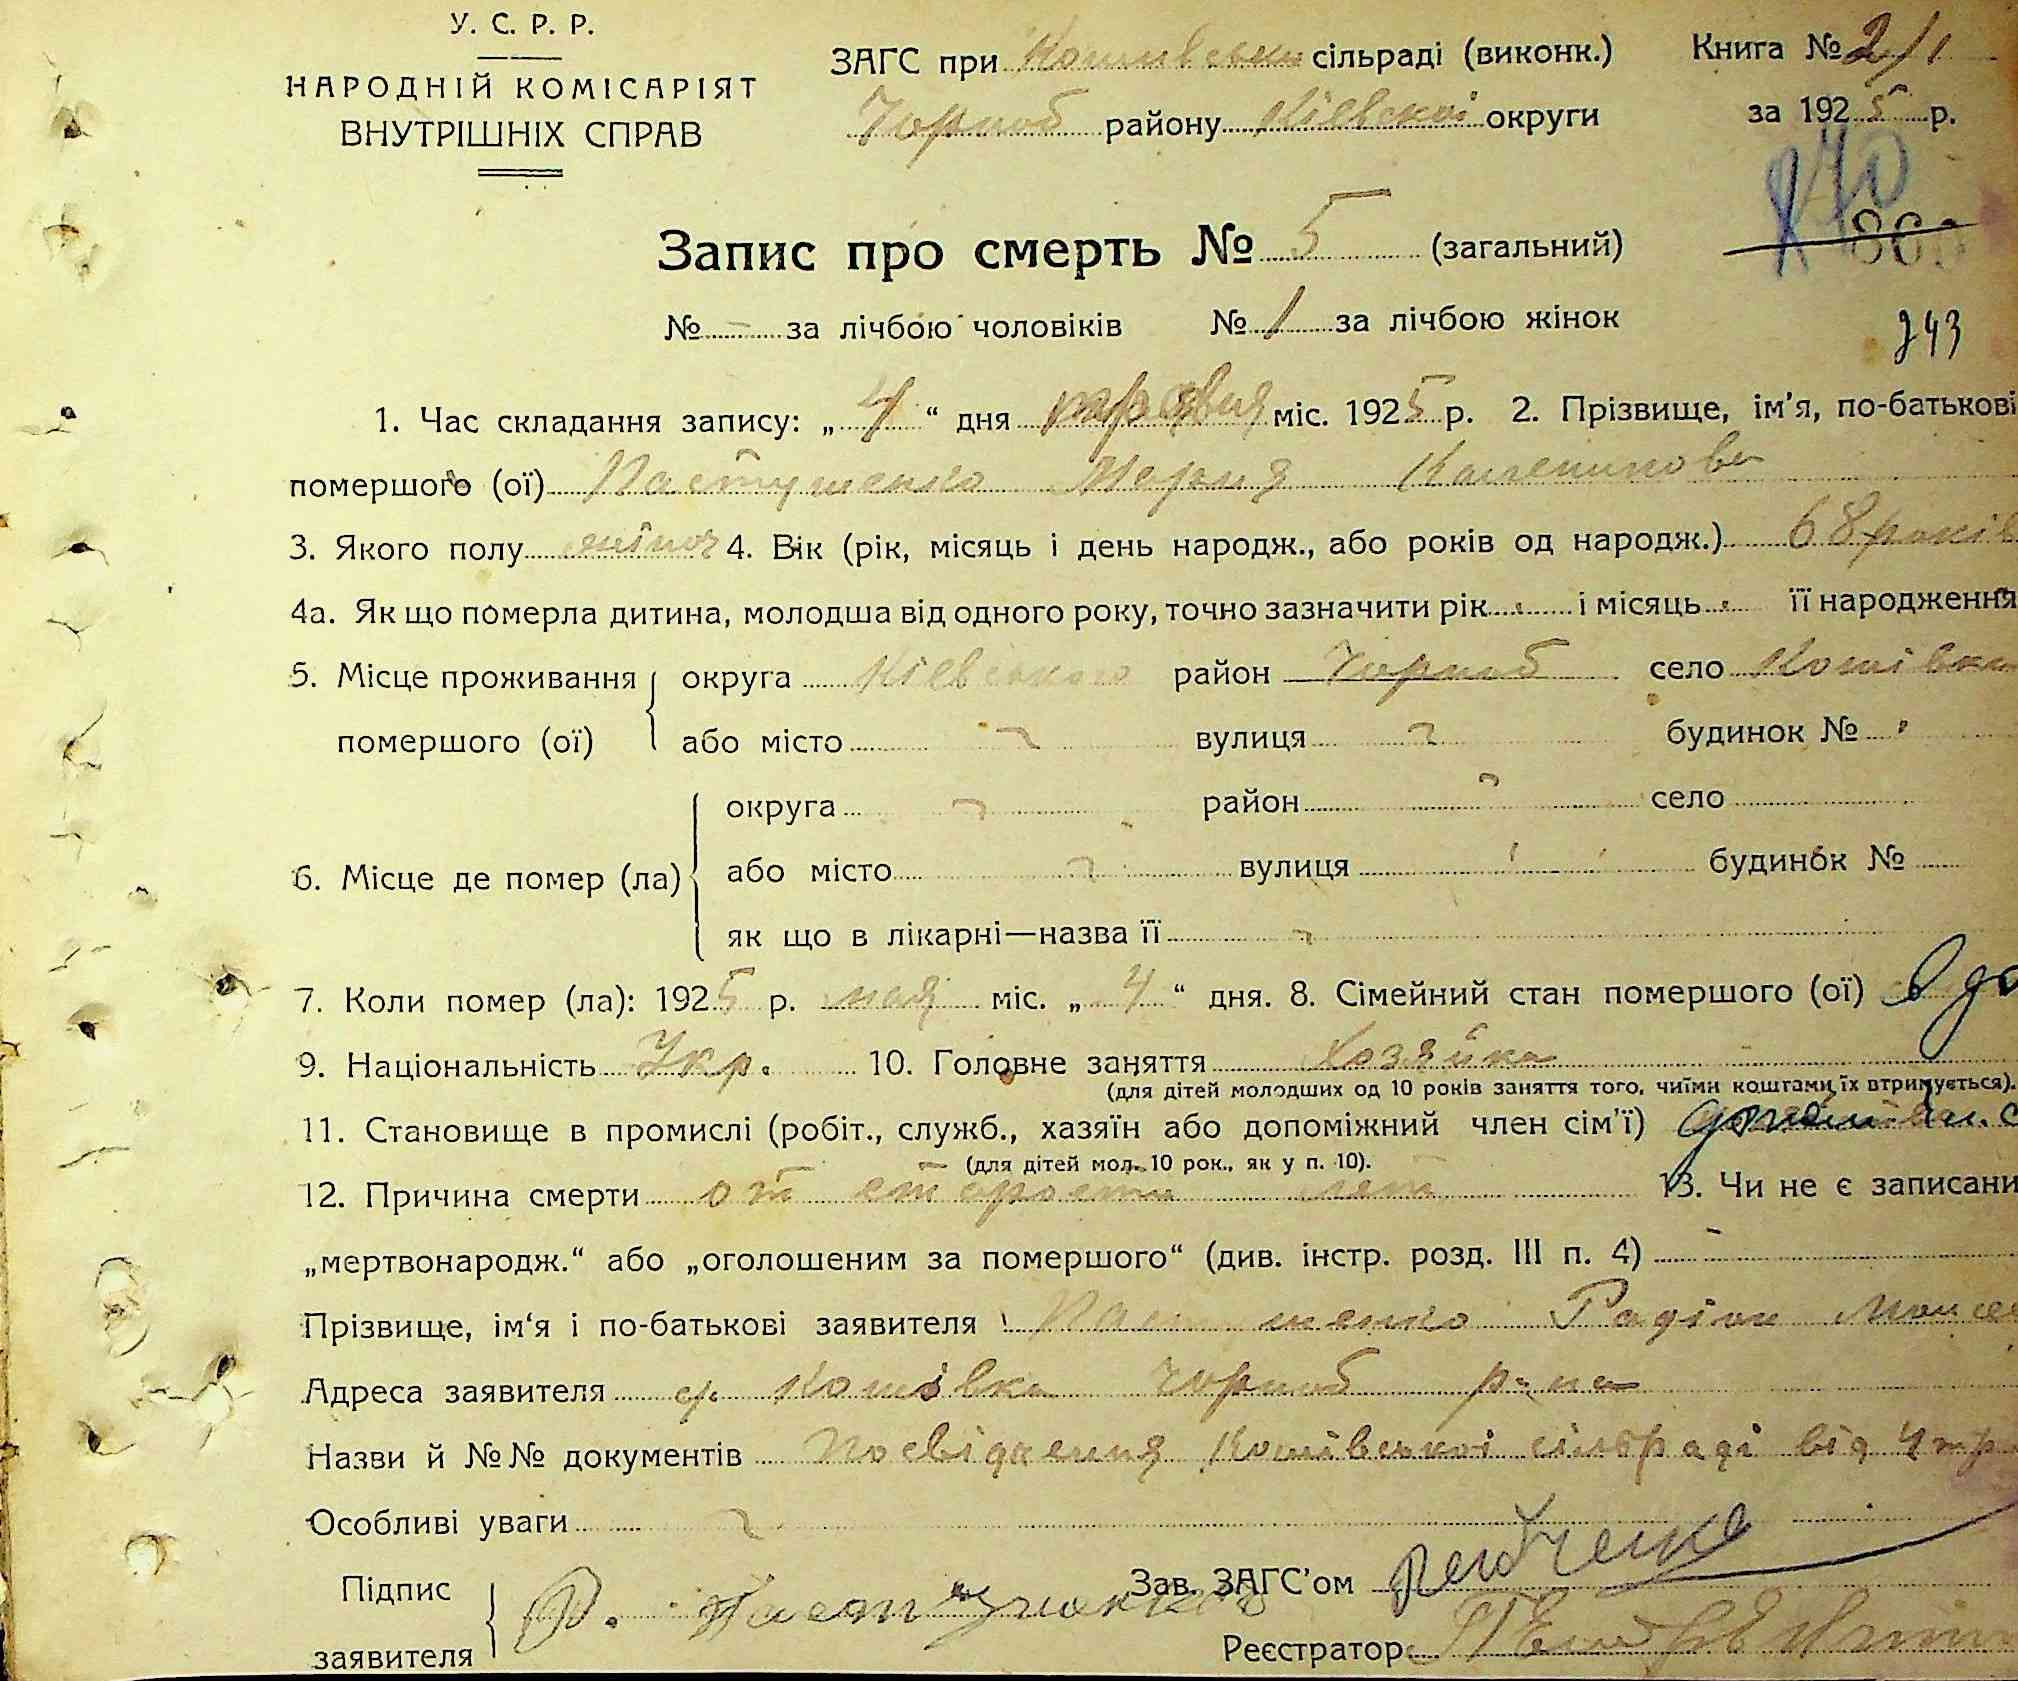 У. С. Р. Р.
НАРОДНІЙ КОМІСАРІЯТ
ВНУТРІШНІХ СПРАВ
ЗАГС при сільраді (виконк.)
Чорноб району Київскоі округи
Книга № 2/1
за 1925 р.
870
860
Запис про смерть № 5 (загальний)
№ - за лічбою чоловіків № 1 за лічбою жінок
243
1. Час складання запису: „4“ дня травня міс. 1925 р. 2. Прізвище, ім'я, по-батькові
помершого (ої) Пастушенко Мария
3. Якого полу жіноч 4. Вік (рік, місяць і день народж., або років од народж.) 68 років
4а. Як що померла дитина, молодша від одного року, точно зазначити рік і місяць її народження
5. Місце проживання округа Київського район Чорноб село Кошівка
помершого (ої) або місто вулиця будинок №
6. Місце де помер (ла) округа район село
або місто вулиця будинок №
як що в лікарні—назва її
7. Коли помер (ла): 1925 р. мая міс. „4“ дня. 8. Сімейний стан помершого (ої) вдо
9. Національність Укр. 10. Головне заняття Хозяйка
(для дітей молодших од 10 років заняття того, чиїми коштами їх втримується).
11. Становище в промислі (робіт., служб., хазяїн або допоміжний член сім'ї)
(для дітей мол. 10 рок., як у п. 10).
12. Причина смерти от старости лет 13. Чи не є записани
„мертвонародж.“ або „оголошеним за помершого“ (див. інстр. розд. III п. 4) -
Прізвище, ім'я і по-батькові заявителя Пастушенко Радіон Моисе
Адреса заявителя с. Кошівка Чорноб р-на
Назви й №№ документів Посвідчення Кошівськоі сільраді від 4 тр
Особливі уваги
Підпис
заявителя Р. Пастушенко
Зав. ЗАГС'ом
Реєстратор